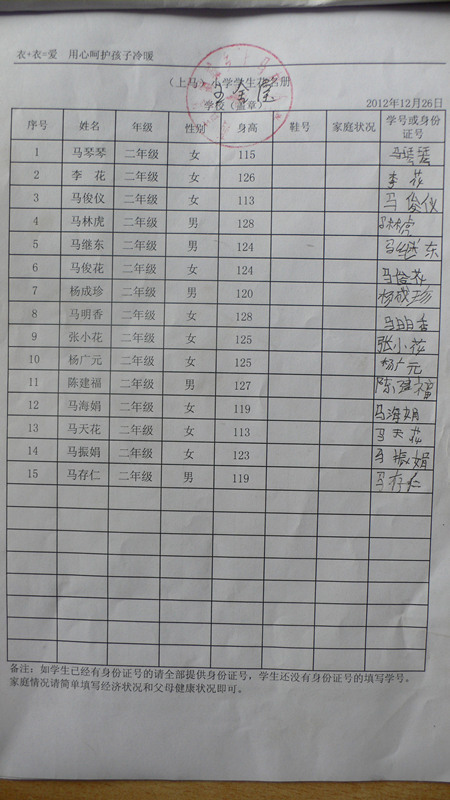 衣+衣=爱 用心呵护孩子冷暖
（上马）小学学生花名册
学校（盖章）
2012年12月26日
序号 姓名 年级 性别 身高 鞋号 家庭状况 学号或身份证号
1 马琴琴 二年级 女 115 马琴琴
2 李 花 二年级 女 126 李 花
3 马俊仪 二年级 女 113 马俊仪
4 马林虎 二年级 男 128 马林虎
5 马继东 二年级 男 124 马继东
6 马俊花 二年级 女 124 马俊花
7 杨成珍 二年级 男 120 杨成珍
8 马明香 二年级 女 128 马明香
9 张小花 二年级 女 125 张小花
10 杨广元 二年级 女 125 杨广元
11 陈建福 二年级 男 127 陈建福
12 马海娟 二年级 女 119 马海娟
13 马天花 二年级 女 113 马天花
14 马振娟 二年级 女 123 马振娟
15 马存仁 二年级 男 119 马存仁
备注：如学生已经有身份证号的请全部提供身份证号，学生还没有身份证号的填写学号。
家庭情况请简单填写经济状况和父母健康状况即可。